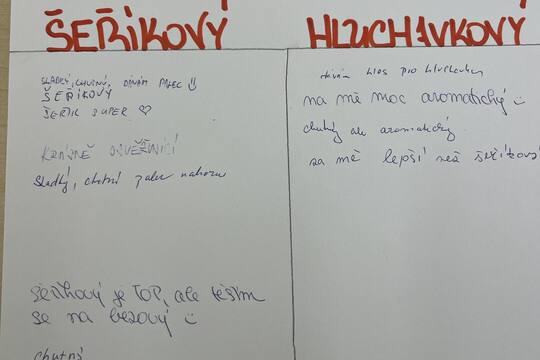 ŠEŘIKOVÝ
SLADKÝ, CHUTNÝ, DÁVÁM PALEC
ŠEŘÍKOVÝ
ŠEŘÍK SUPER ♡
KRÁSNĚ OSVĚŽUJÍCÍ
sladký, chutní palec nahoru
šeříkový je TOP, ale těším
se na bezový
chutná
HLUCHAVKOVÝ
dávám hlas pro hluchavku
na mě moc aromatický
chutný ale aromatický
za mě lepší než šeříkový